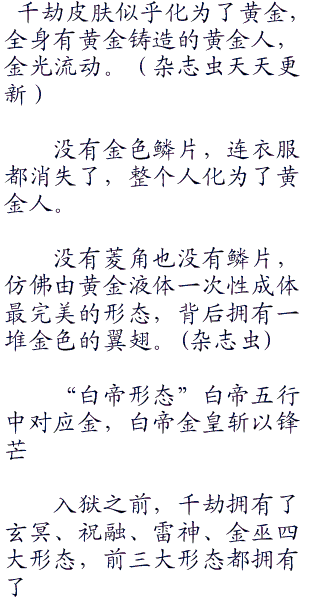 千劫皮肤似乎化为了黄金，
全身有黄金铸造的黄金人，
金光流动。（杂志虫天天更
新）
没有金色鳞片，连衣服
都消失了，整个人化为了黄
金人。
没有菱角也没有鳞片，
仿佛由黄金液体一次性成体
最完美的形态，背后拥有一
堆金色的翼翅。(杂志虫)
“白帝形态”白帝五行
中对应金，白帝金皇斩以锋
芒
入狱之前，千劫拥有了
玄冥、祝融、雷神、金巫四
大形态，前三大形态都拥有
了